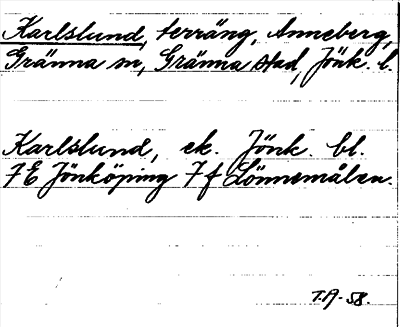 Karlslund, terräng, Anneberg,
Gränna sn, Gränna stad, Jönk. l.
Karlslund, ek. Jönk. bl.
7E Jönköping 7f Lönnemålen.
T.A-58.